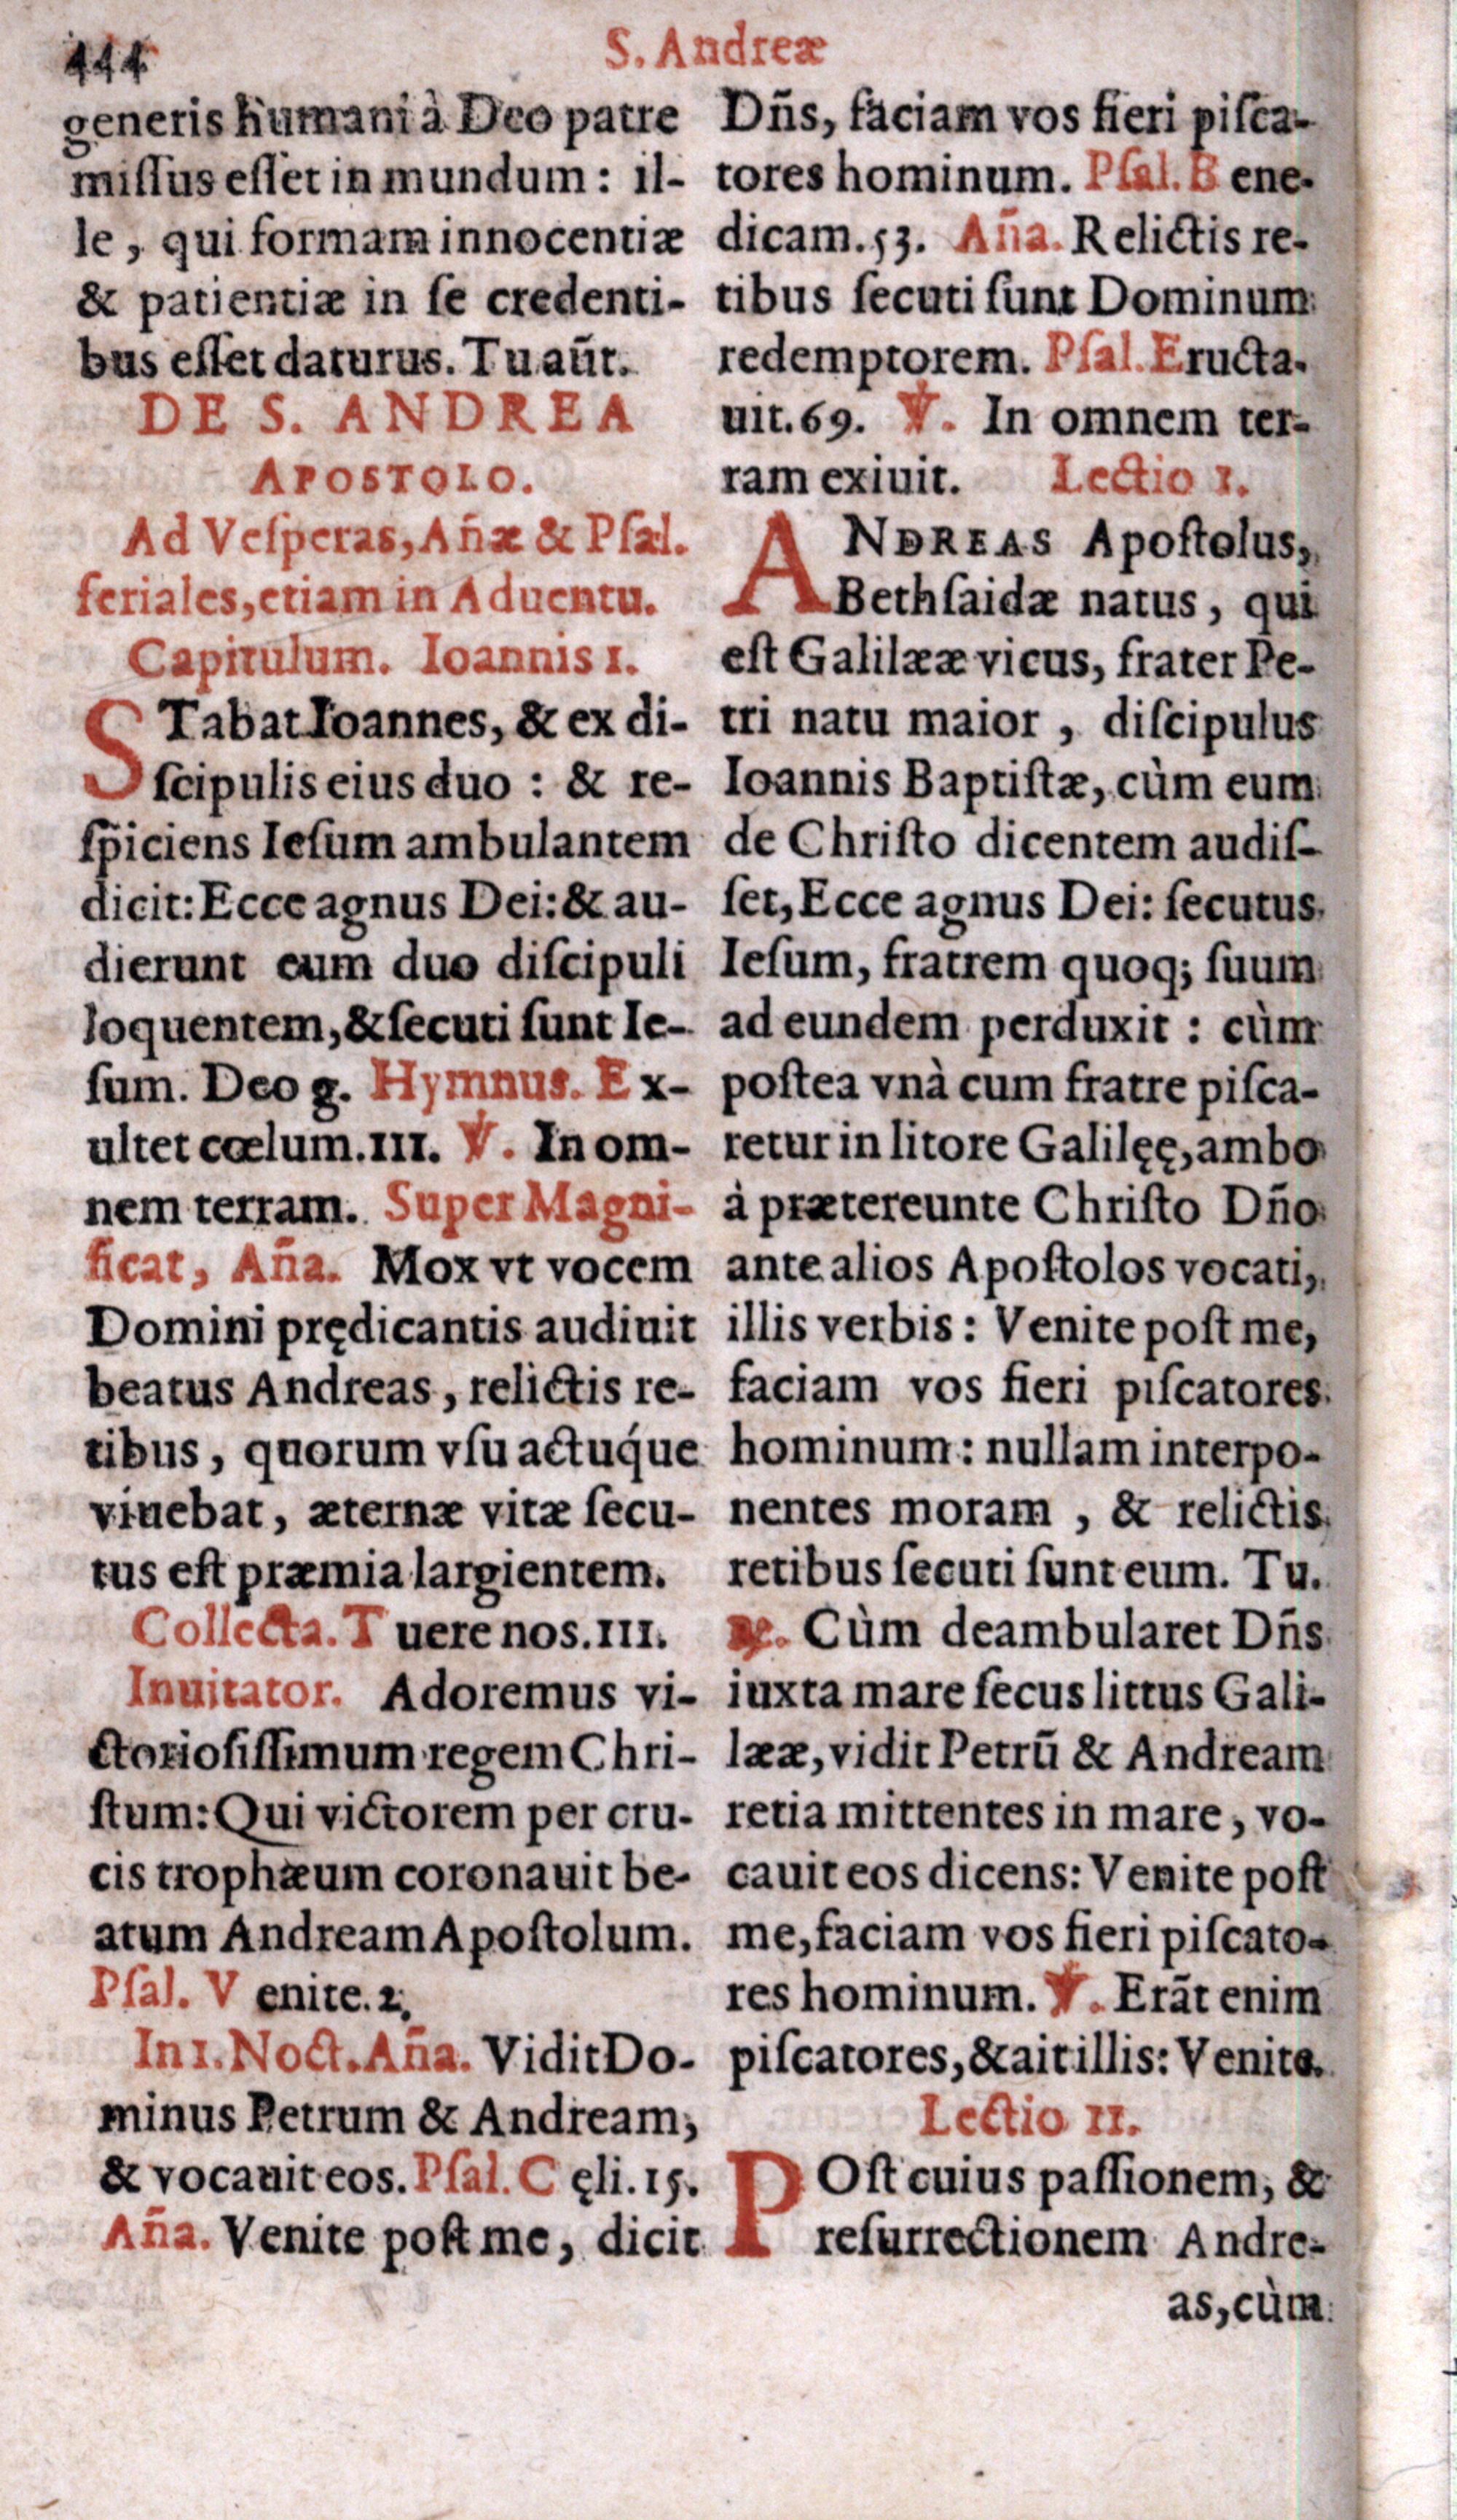 444
S. Andreæ
generis humani à Deo patre
miſſus eſſet in mundum: il-
le, qui formam innocentiæ
& patientiæ in ſe credenti-
bus eſſet daturus. Tu aūt.
DE S. ANDREA
APOSTOLO.
Ad Veſperas, Añæ & Pſal.
feriales, etiam in Aduentu.
Capitulum. Ioannis 1.
STabat Ioannes, & ex di-
ſcipulis eius duo: & re-
ſpiciens Ieſum ambulantem
dicit: Ecce agnus Dei: & au-
dierunt eum duo diſcipuli
loquentem, & ſecuti ſunt Ie-
ſum. Deo g. Hymnus. Ex-
ultet cœlum. III. ℣. In om-
nem terram. Super Magni-
ficat, Aña. Mox vt vocem
Domini prędicantis audiuit
beatus Andreas, relictis re-
tibus, quorum vſu actuq́ue
viuebat, æternæ vitæ ſecu-
tus eſt præmia largientem.
Collecta. Tuere nos. III.
Inuitator. Adoremus vi-
ctorioſiſſimum regem Chri-
ſtum: Qui victorem per cru-
cis trophæum coronauit be-
atum Andream Apoſtolum.
Pſal. Venite. 2.
In 1. Noct. Aña. Vidit Do-
minus Petrum & Andream,
& vocauit eos. Pſal. Cęli. 15.
Aña. Venite poſt me, dicit
Dñs, faciam vos fieri piſca-
tores hominum. Pſal. Bene-
dicam. 53. Aña. Relictis re-
tibus ſecuti ſunt Dominum
redemptorem. Pſal. Eructa-
uit. 69. ℣. In omnem ter-
ram exiuit. Lectio 1.
ANDREAS Apoſtolus,
Bethſaidæ natus, qui
eſt Galilææ vicus, frater Pe-
tri natu maior, diſcipulus
Ioannis Baptiſtæ, cùm eum
de Chriſto dicentem audiſ-
ſet, Ecce agnus Dei: ſecutus
Ieſum, fratrem quoq; ſuum
ad eundem perduxit: cùm
poſtea vnà cum fratre piſca-
retur in litore Galilęę, ambo
à prætereunte Chriſto Dño
ante alios Apoſtolos vocati,
illis verbis: Venite poſt me,
faciam vos fieri piſcatores
hominum: nullam interpo-
nentes moram, & relictis
retibus ſecuti ſunt eum. Tu.
℟. Cùm deambularet Dñs
iuxta mare ſecus littus Gali-
lææ, vidit Petrū & Andream
retia mittentes in mare, vo-
cauit eos dicens: Venite poſt
me, faciam vos fieri piſcato-
res hominum. ℣. Erāt enim
piſcatores, & ait illis: Venite.
Lectio II.
POſt cuius paſſionem, &
reſurrectionem Andre-
as, cùm